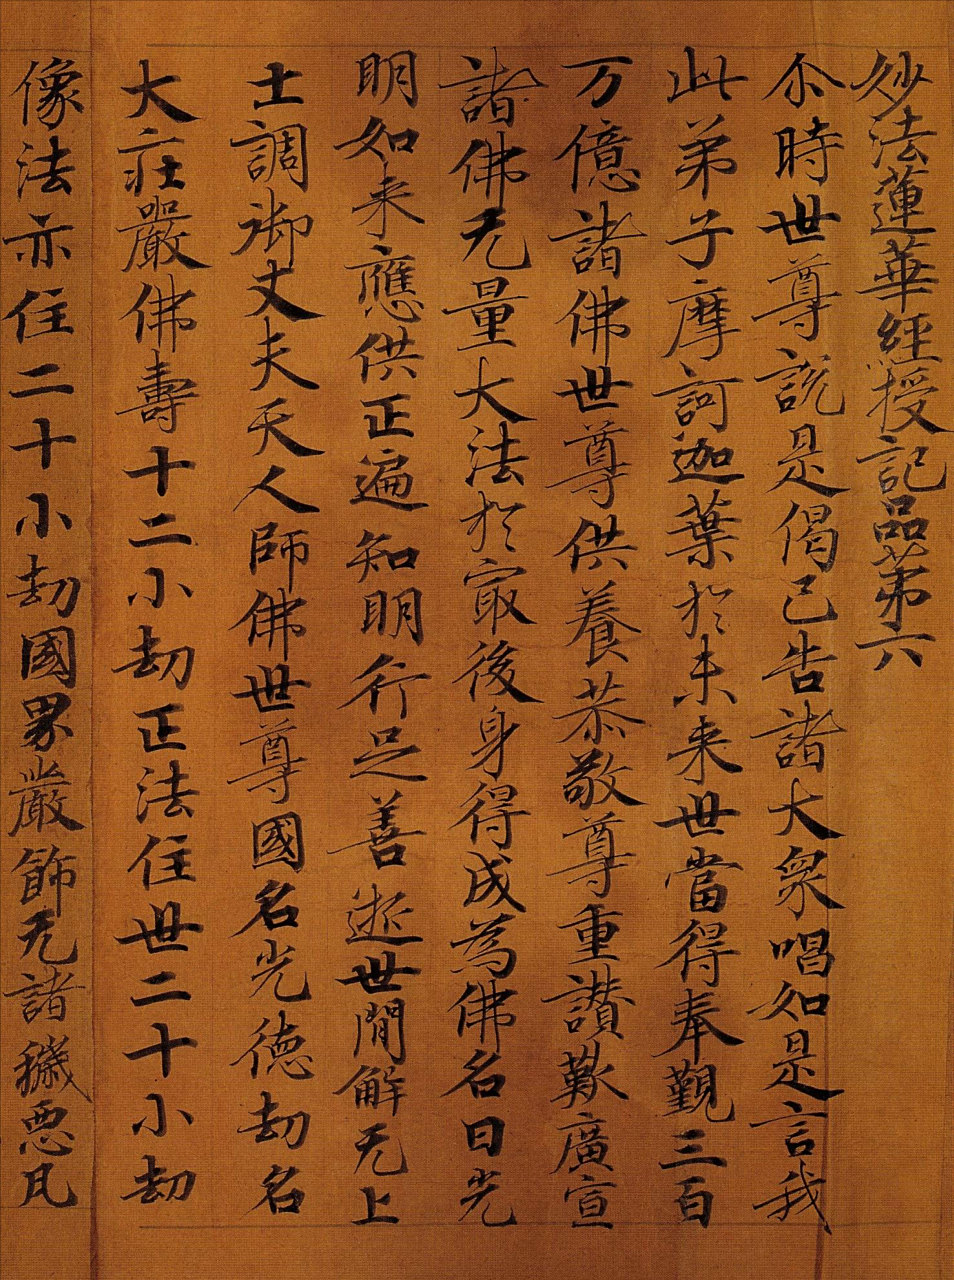 妙法蓮華經授記品苐六
尒時世尊說是偈已告諸大衆唱如是言我
此弟子摩訶迦葉於未来世當得奉覲三百
万億諸佛世尊供養恭敬尊重讃歎廣宣
諸佛无量大法於冣後身得成為佛名曰光
明如来應供正遍知明行足善逝世間解无上
士調御丈夫天人師佛世尊國名光德劫名
大莊嚴佛壽十二小劫正法住世二十小劫
像法亦住二十小劫國界嚴飾无諸穢惡凡